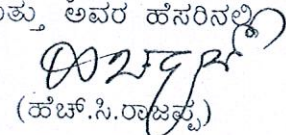 ಅವರ ಹೆಸರಿನಲ್ಲಿ
(ಹೆಚ್.ಸಿ.ರಾಜಪ್ಪ)